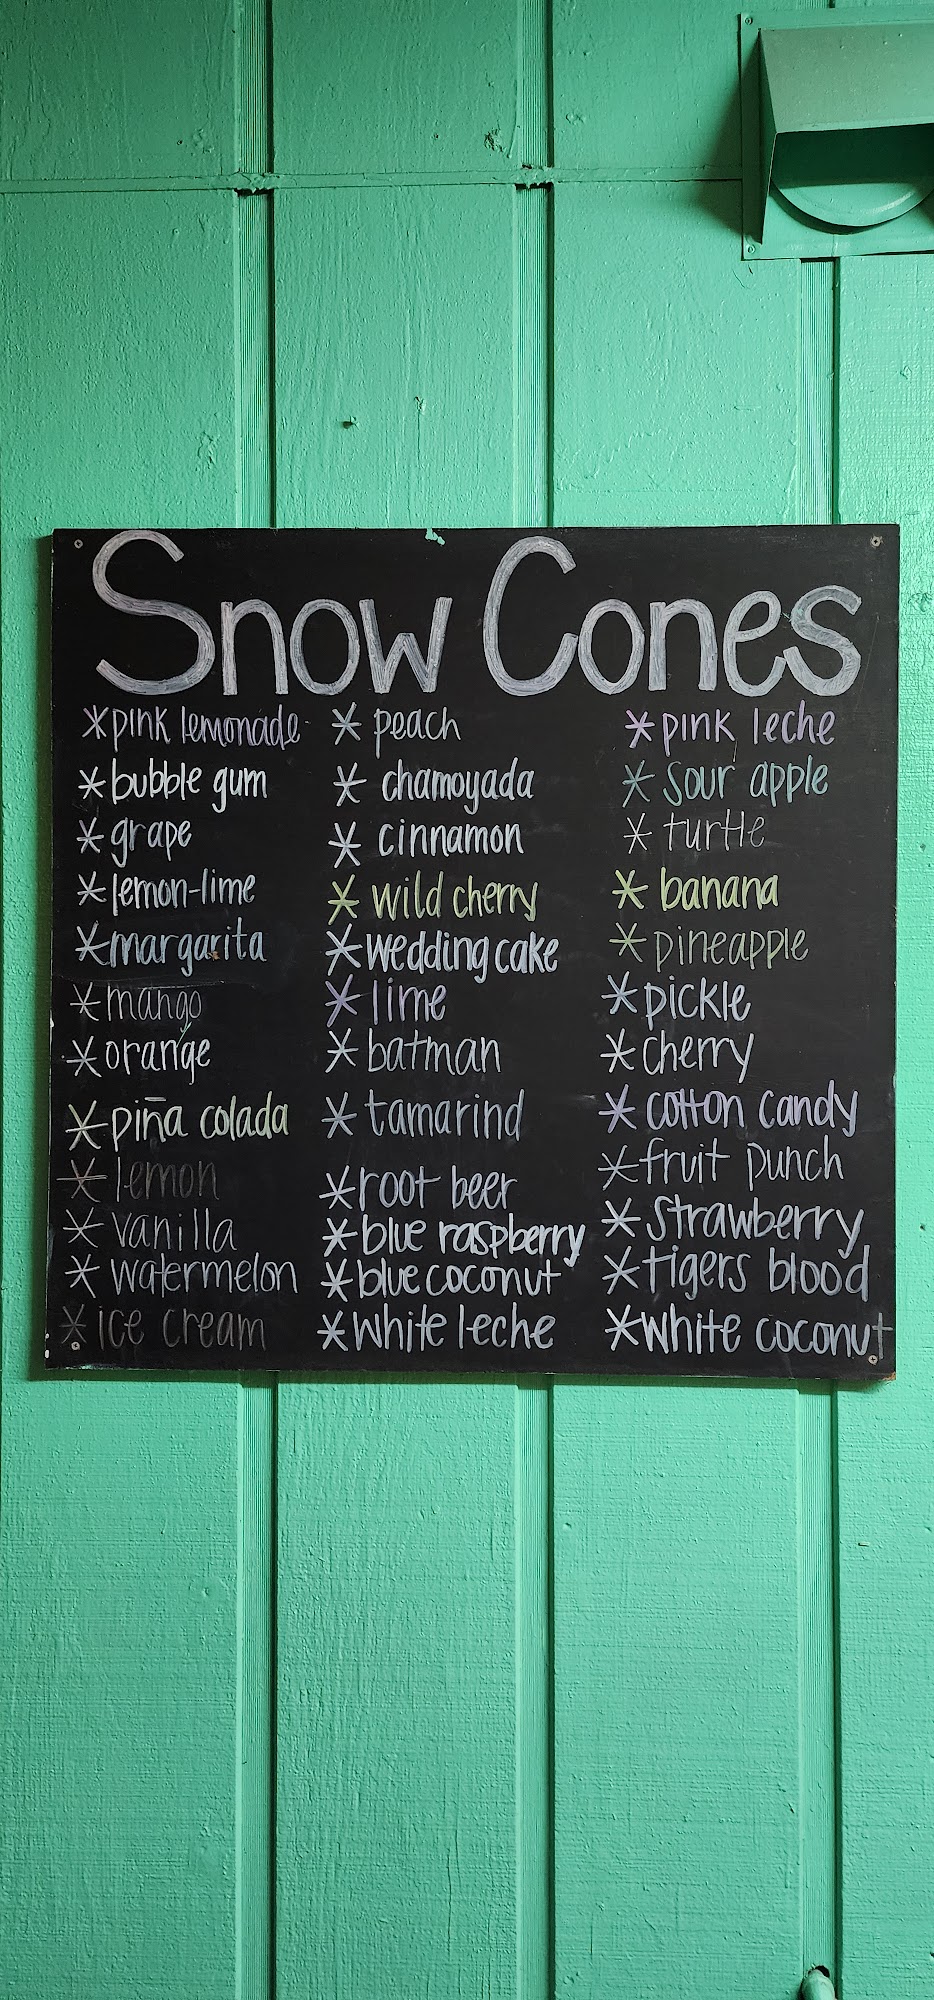 Snow Cones
*pink lemonade
*bubble gum
*grape
*lemon-lime
*margarita
*mango
*orange
*piña colada
*lemon
*vanilla
*watermelon
*ice cream
*peach
*chamoyada
*cinnamon
*wild cherry
*wedding cake
*lime
*batman
*tamarind
*root beer
*blue raspberry
*blue coconut
*white leche
*pink leche
*sour apple
*turtle
*banana
*pineapple
*pickle
*cherry
*cotton candy
*fruit punch
*strawberry
*tigers blood
*white coconut